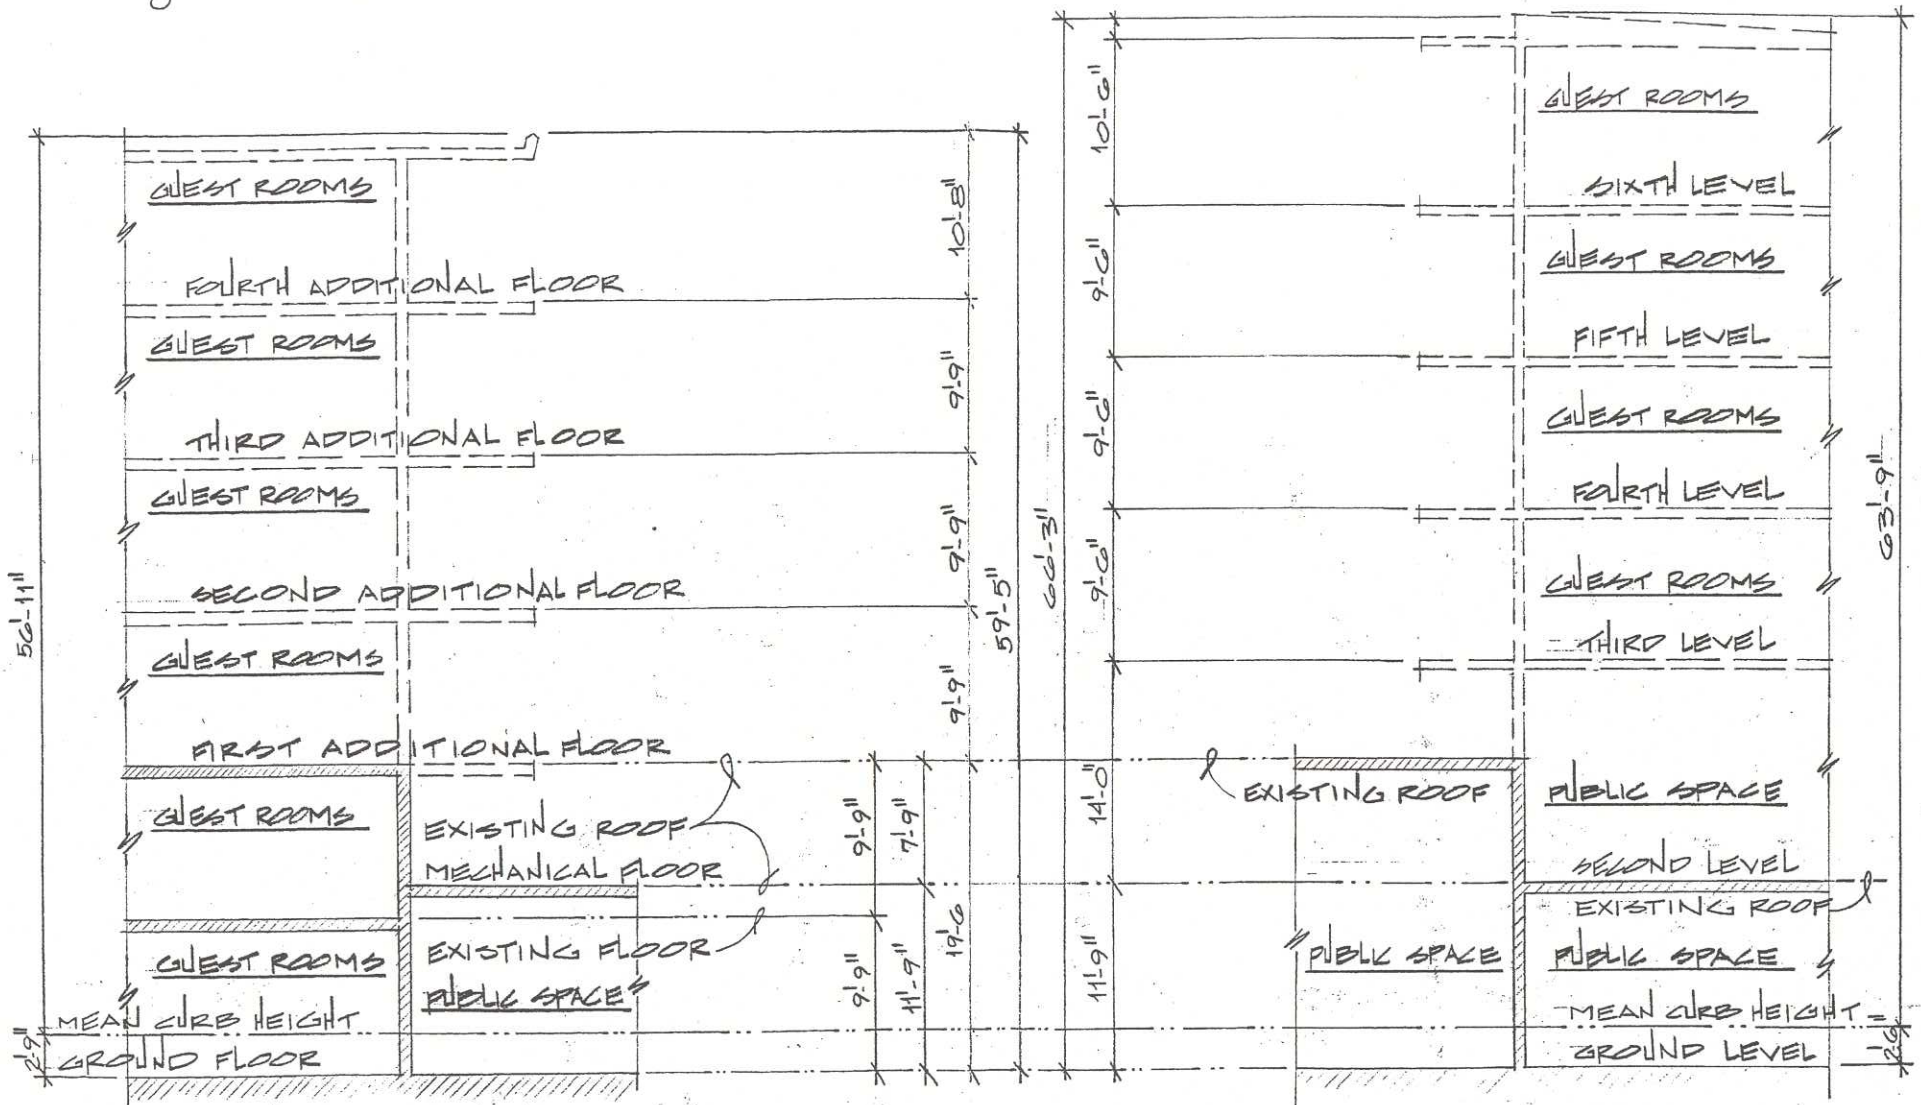 GUEST ROOMS
FOURTH ADDITIONAL FLOOR
GUEST ROOMS
THIRD ADDITIONAL FLOOR
GUEST ROOMS
SECOND ADDITIONAL FLOOR
GUEST ROOMS
FIRST ADDITIONAL FLOOR
GUEST ROOMS
EXISTING ROOF
MECHANICAL FLOOR
GUEST ROOMS
EXISTING FLOOR
PUBLIC SPACE
MEAN CURB HEIGHT
GROUND FLOOR
56'-11"
2'-9"
10'-8"
9'-9"
9'-9"
9'-9"
9'-9"
7'-9"
9'-9"
11'-9"
19'-6
59'-5"
66'-3"
10'-6"
9'-6"
9'-6"
9'-6"
14'-0"
11'-9"
GUEST ROOMS
SIXTH LEVEL
GUEST ROOMS
FIFTH LEVEL
GUEST ROOMS
FOURTH LEVEL
GUEST ROOMS
THIRD LEVEL
EXISTING ROOF
PUBLIC SPACE
SECOND LEVEL
EXISTING ROOF
PUBLIC SPACE
PUBLIC SPACE
MEAN CURB HEIGHT =
GROUND LEVEL
63'-9"
2'-6